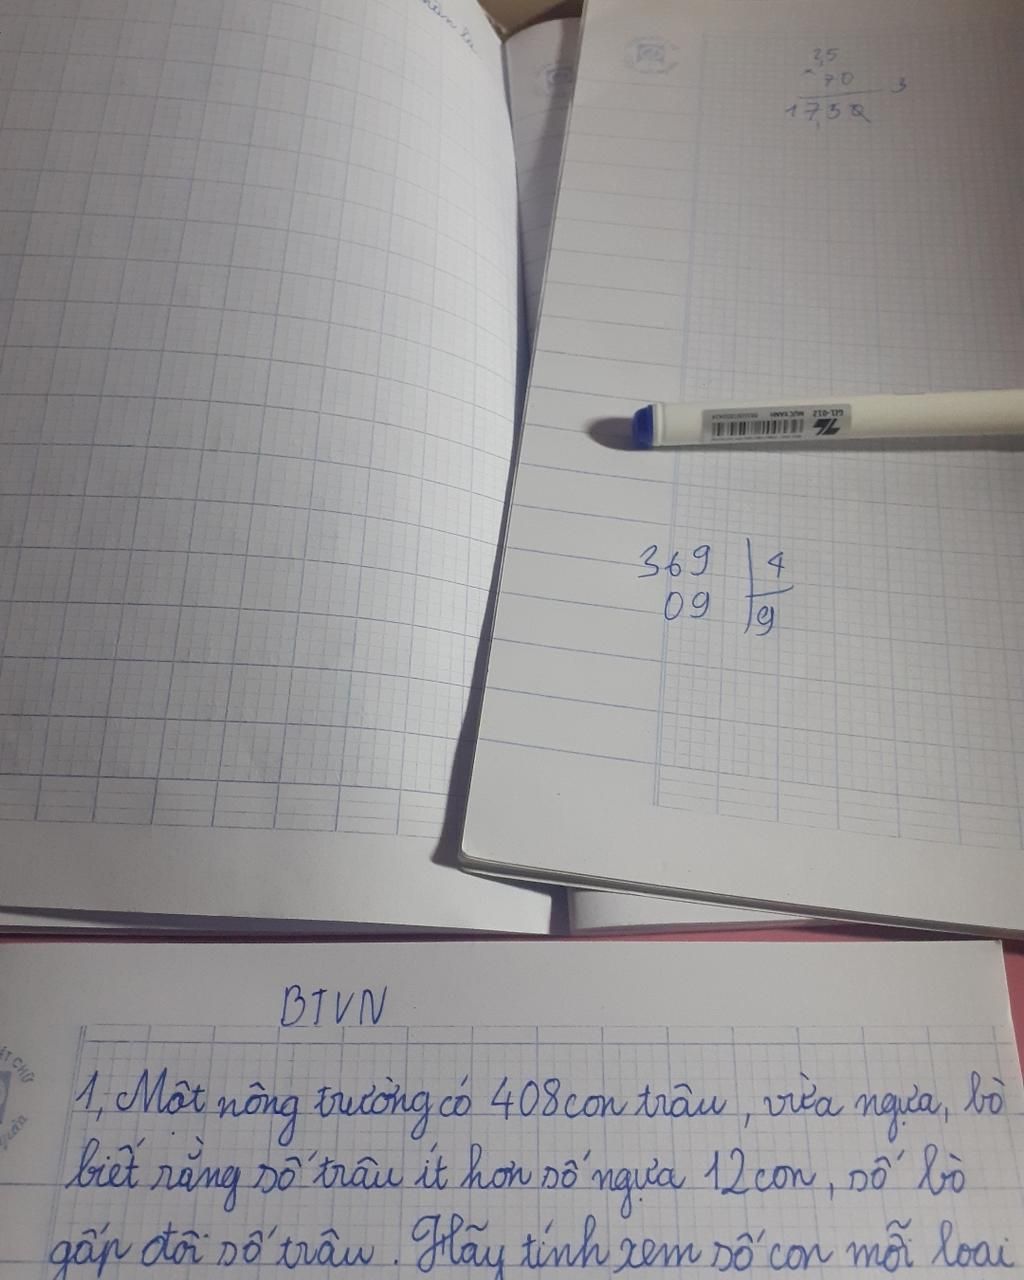 25
× 70
3
369 4
09 9
GEL-012
MỰC XANH
BTVN
1, Một nông trường có 408 con trâu, vừa ngựa, bò
biết rằng số trâu ít hơn số ngựa 12 con, số bò
gấp đôi số trâu. Hãy tính xem số con mỗi loại